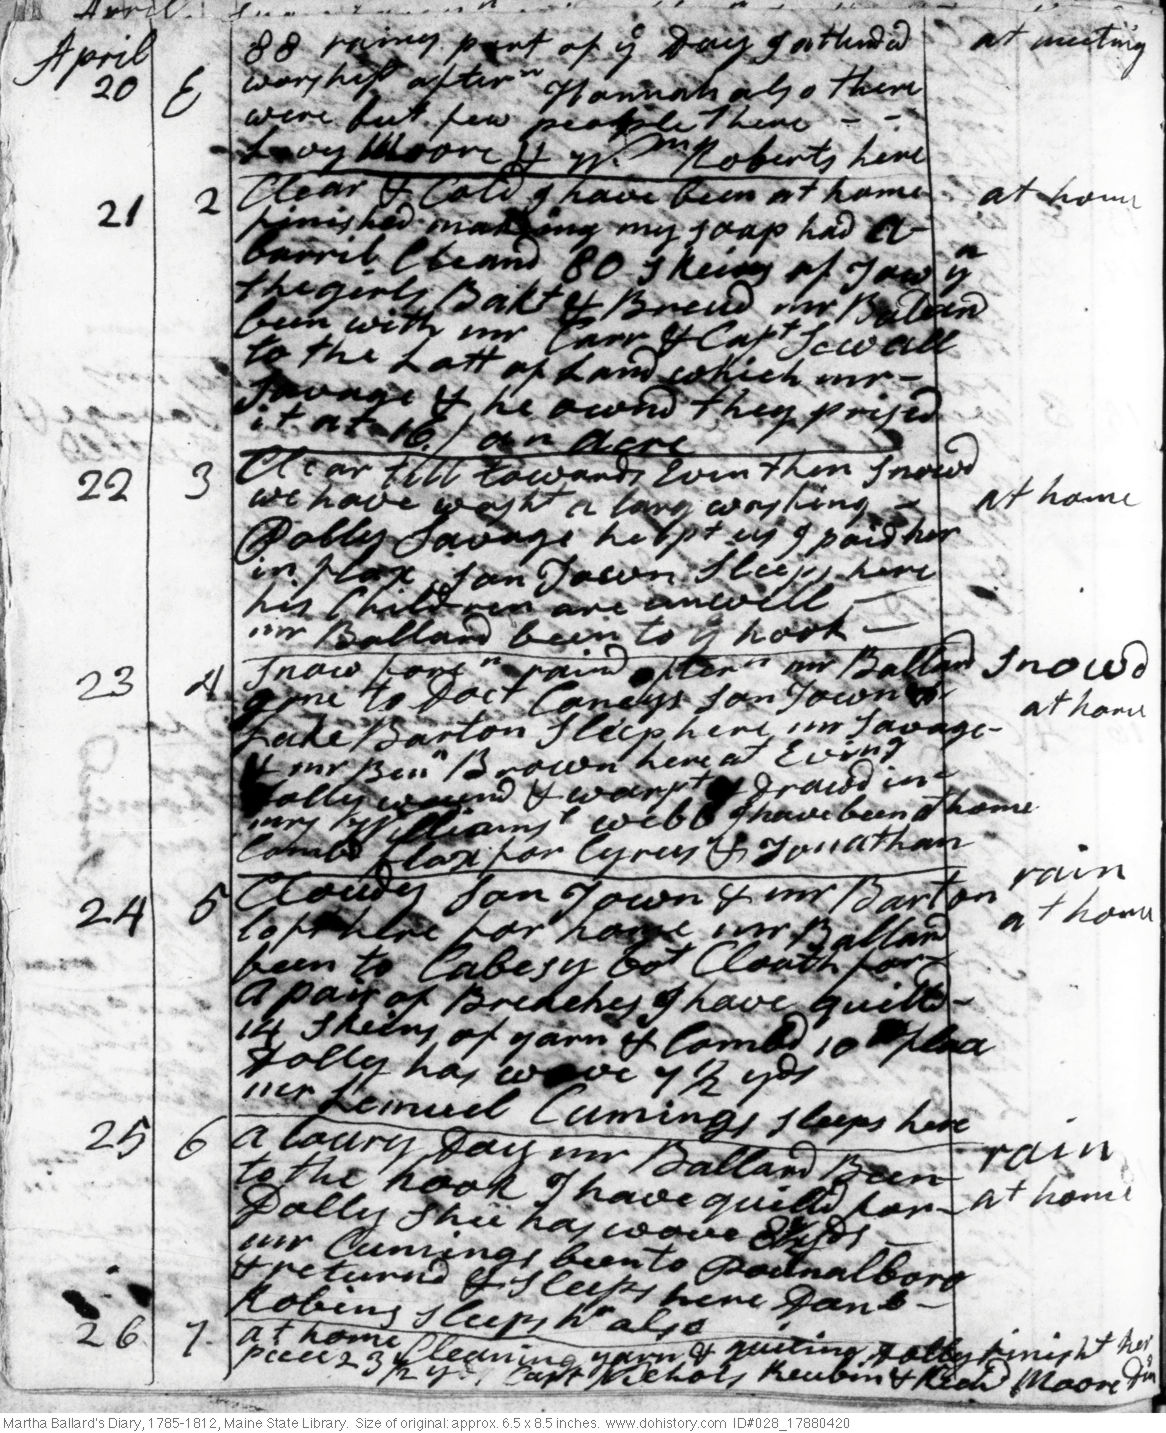 April
88 rainy part of ye Day I attended at meeting
20 E worship aftern Hannah also there
were but few people there - -
Levy Moore & Wm Roberts here
Clear & Cold I have been at home at home
21 2 finished making my soap had a
barril Cleand 80 Skeins of Tow yn
the girls Bakt & Brewd mr Ballard
been with mr Carr & Capt Sewall
to the Lott of Land which mr -
Savage & he ownd they prised
it at 16/ an acre
22 3 Clear till towards Even then Snowd
we have washt a larg washing - at home
Polly Savage helpt us I paid her
in flax, Son Town Sleeps here
his Children are unwell -
mr Ballard been to ye hook -
23 4 Snow foren raind aftern mr Ballard Snowd
gone to Doct Coneys Son Town & at home
Luke Barton Sleep here mr Savage -
& mr Benn Brown here at Evinng
Dolly wound & warpt & drawd in -
mrs Williams's webb I have been at home
Combd flax for Cyrus & Jonathan
24 5 Cloudy Son Town & mr Barton rain
left here for home mr Ballard at home
been to Cabesy Bot Cloath for -
a pair of Breaches I have quilld -
14 Skeins of yarn & Combd 10 flax
Dolly has wove 7 1/2 yds
mr Lemuel Cumings sleeps here
25 6 a lowry Day mr Ballard Been rain
to the hook I have quilld for - at home
Dolly Shee has wove 8 1/2 yds -
mr Cumings been to Pownalboro
& returnd & Sleeps here Danl -
Robins sleeps hr also
26 7 at home Cleaning yarn & quiling Dolly finisht her
piece 23 1/2 yds Capt Nichols Reubin & Read Moore Din'd
Martha Ballard's Diary, 1785-1812, Maine State Library. Size of original: approx. 6.5 x 8.5 inches. www.dohistory.com ID#028_17880420